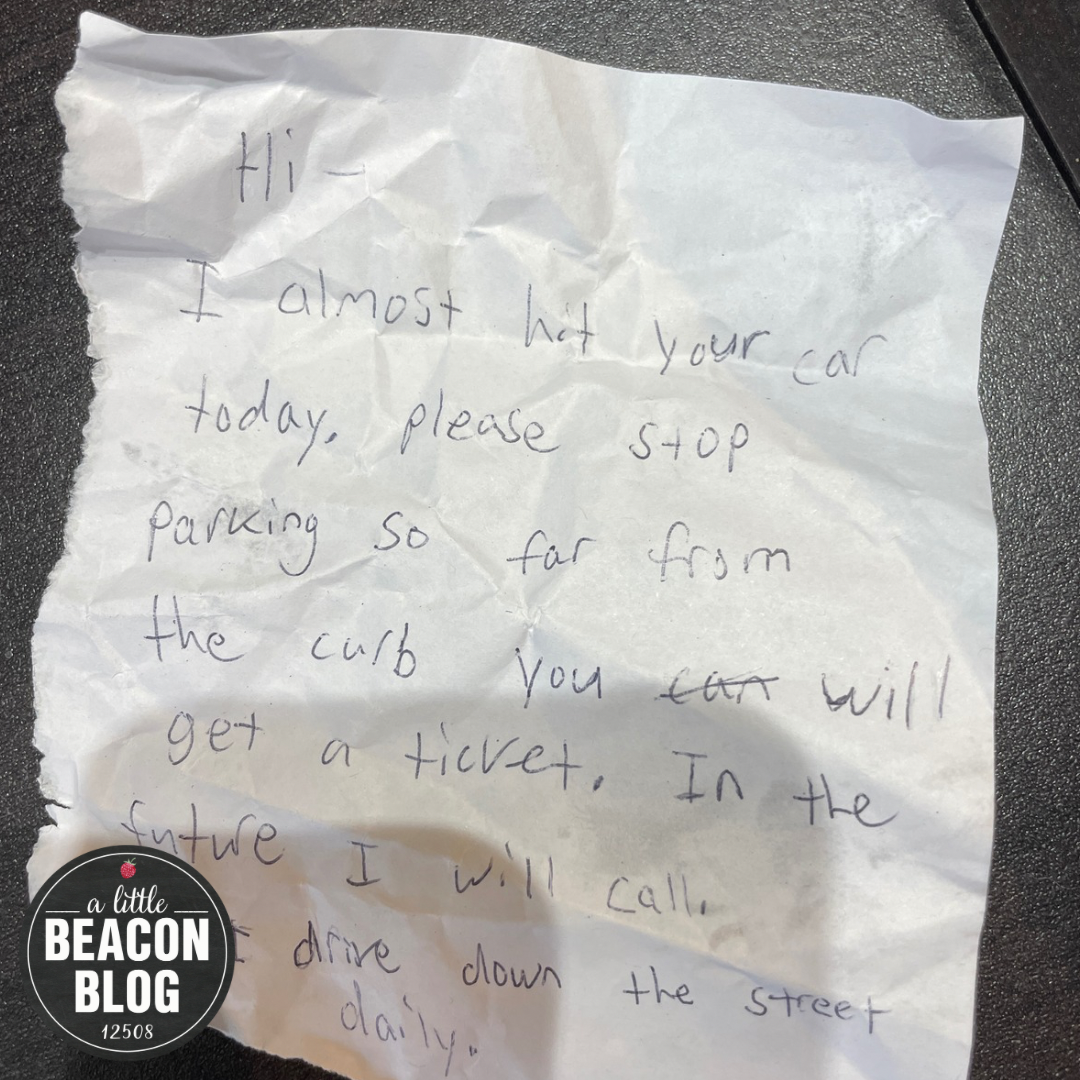 Hi -
I almost hit your car
today. please stop
parking so far from
the curb you can will
get a ticket. In the
future I will call.
I drive down the street
daily.
a little
BEACON
BLOG
12508